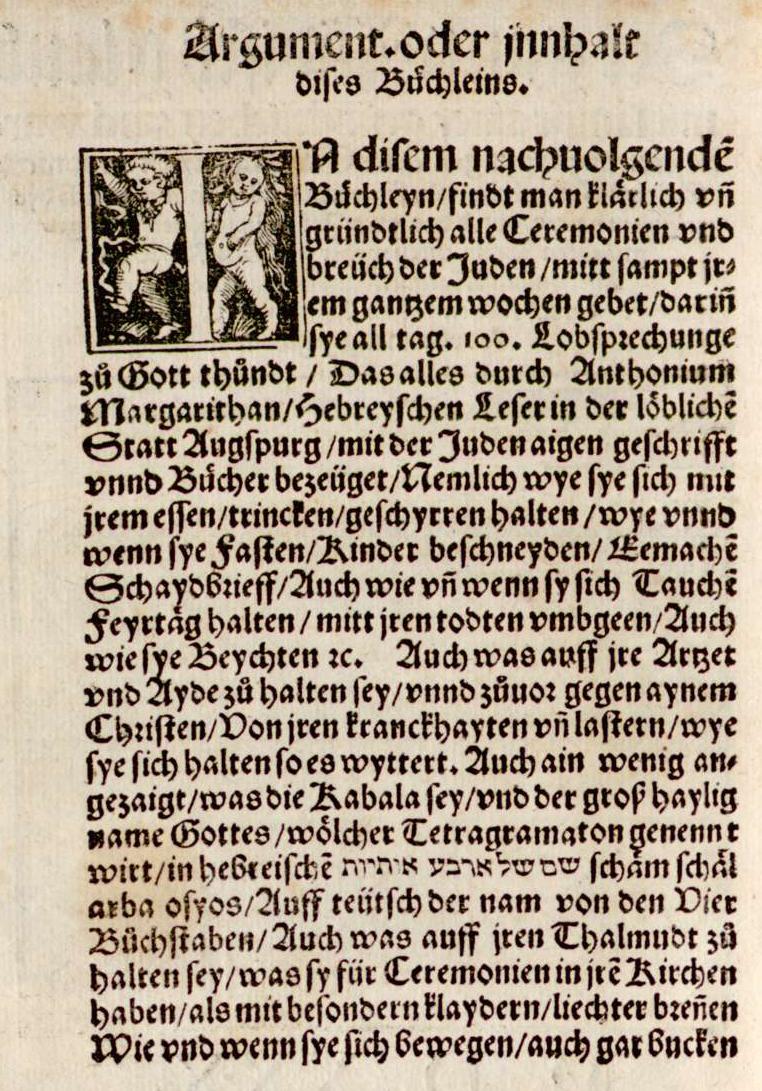 Argument. oder jnnhalt
dises Buͤchleins.
IN disem nachuolgendẽ
Buͤchleyn/findt man klaͤrlich vñ
gründtlich alle Ceremonien vnd
breüch der Juden/mitt sampt jr⸗
em gantzem wochen gebet/dariñ
sye all tag. 100. Lobsprechunge
zuͦ Gott thuͦndt / Das alles durch Anthonium
Margaritham/Hebreyschen Leser in der loͤblichẽ
Statt Augspurg/mit der Juden aigen geschrifft
vnnd Buͤcher bezeüget/Nemlich wye sye sich mit
jrem essen/trincken/geschyrren halten/wye vnnd
wenn sye Fasten/Kinder beschneyden/Eemachẽ
Schaydbrieff/Auch wie vñ wenn sy sich Tauchẽ
Feyrtaͤg halten/mitt jren todten vmbgeen/Auch
wie sye Beychten ꝛc. Auch was auff jre Artzet
vnd Ayde zuͦ halten sey/vnnd zuͦuor gegen aynem
Christen/Von jren kranckhayten vñ lastern/wye
sye sich halten so es wyttert. Auch ain wenig an⸗
gezaigt/was die Kabala sey/vnd der groß haylig
name Gottes/woͤlcher Tetragramaton genennt
wirt/in hebreischẽ שם של ארבע אותיות schaͤm schaͤl
arba osyos/Auff teütsch der nam von den Vier
Buͤchstaben/Auch was auff jren Thalmudt zuͦ
halten sey/was sy für Ceremonien in jrẽ Kirchen
haben/als mit besondern klaydern/liechter breñen
Wie vnd wenn sye sich bewegen/auch gar bucken